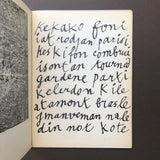 kekako foni
iat rodjan parisi
kes ki fon combrui
isont an tournéd
gardene parti
keledon kile
atamont brasle
j manveman nale
din not kote